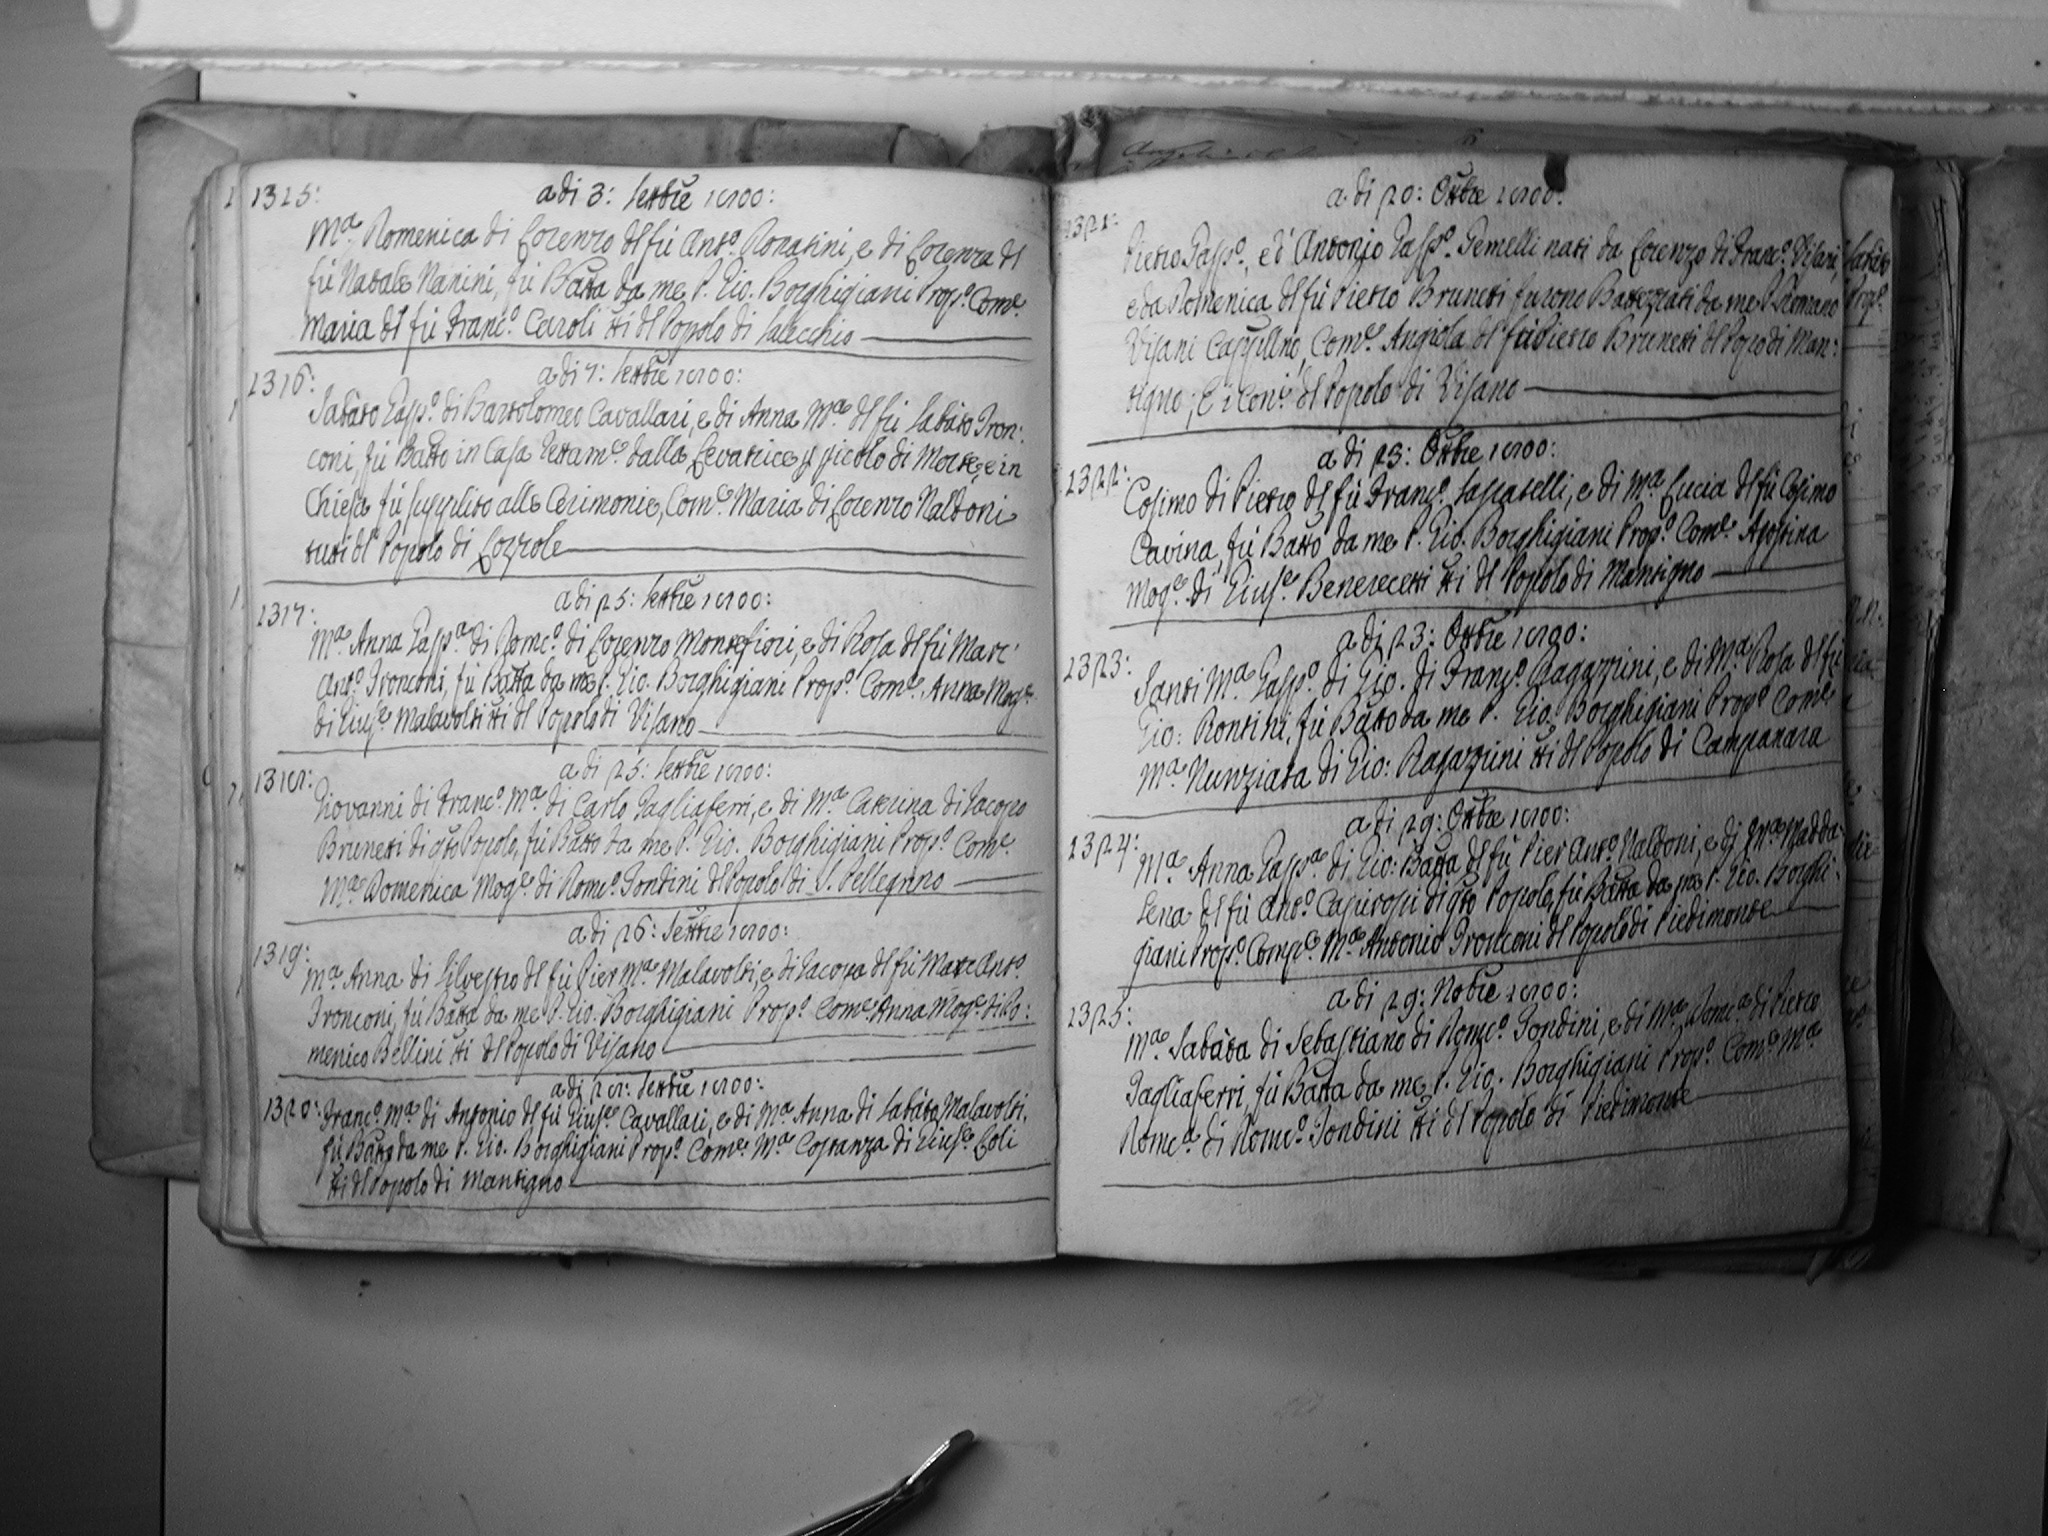 1315:
a di 3: Settbre 1700:
Mª Domenica di Lorenzo del fú Antº Donatini, e di Lorenza del
fú Natale Nanini, fú Batta da me P. Gio. Borghigiani Propº Come
Maria del fú Francº Ceroli tti del Popolo di Salecchio
1316:
a di 7: Settbre 1700:
Sabato Gaspº di Bartolomeo Cavallari, e di Anna Mª del fú Sabato Tron:
coni, fú Batto in Casa dalla Levatrice p picolo di Morte, e in
Chiesa fú supplito alle Cerimonie, Come Maria di Lorenzo Naldoni
tutti del Popolo di Lozzole
1317:
a di 25: Settbre 1700:
Mª Anna Gaspª di Domcº di Lorenzo Montefiori, e di Rosa del fú Marc'
Antº Tronconi, fú Batta da me P. Gio. Borghigiani Propº Come Anna Moge
di Giuse Malavolti tti del Popolo di Visano
1318:
a di 25: Settbre 1700:
Giovanni di Francº Mª di Carlo Tagliaferri, e di Mª Caterina di Iacopo
Brunetti di qto Popolo, fú Batto da me P. Gio. Borghigiani Propº Come
Mª Domenica Moge di Domcº Tondini del Popolo di S. Pellegrino
1319:
a di 26: Settbre 1700:
Mª Anna di Silvestro del fú Pier Mª Malavolti, e di Iacopa del fú Marc Antº
Tronconi, fú Batta da me P. Gio. Borghigiani Propº Come Anna Moge di Do:
menico Bellini tti del Popolo di Visano
1320:
a di 28: Settbre 1700:
Francº Mª di Antonio del fú Giuse Cavallari, e di Mª Anna di Sabato Malavolti,
fú Batto da me P. Gio. Borghigiani Propº Come Mª Costanza di Giuse Loli
tti del Popolo di Mantigno
a di 20: Ottbre 1700:
1321:
Pietro Gaspº, ed Antonio Gaspº Gemelli nati da Lorenzo di Francº Visani,
e da Domenica del fú Pietro Brunetti furono Battezzati da me P. Romano
Visani Cappllno, Come Angiola del fú Pietro Brunetti del Popo di Man:
tigno; E i Coni del Popolo di Visano
a di 23: Ottbre 1700:
1322:
Cosimo di Pietro del fú Francº Sassatelli, e di Mª Lucia del fú Cosimo
Cavina, fú Batto da me P. Gio. Borghigiani Propº Come Agostina
Moge di Giuse Benerecetti tti del Popolo di Mantigno
a di 23: Ottbre 1700:
1323:
Santi Mª Gaspº di Gio. di Francº Ragazzini, e di Mª Rosa del fú
Gio: Rontini, fú Batto da me P. Gio. Borghigiani Propº Come
Mª Nunziata di Gio: Ragazzini tti del Popolo di Campanara
a di 29: Ottbre 1700:
1324:
Mª Anna Gaspª di Gio: Batta del fú Pier Antº Naldoni, e di Mª Madda:
lena del fú Antº di qto Popolo, fú Batta da me P. Gio. Borghi:
giani Propº Compe Mª Antonio Tronconi del Popolo di Piedimonte
a di 29: Nobre 1700:
1325:
Mª Sabata di Sebastiano di Domcº Tondini, e di Mª Domcª di Pietro
Tagliaferri, fú Batta da me P. Gio. Borghigiani Propº Come Mª
Domcª di Domcº Tondini tti del Popolo di Piedimonte